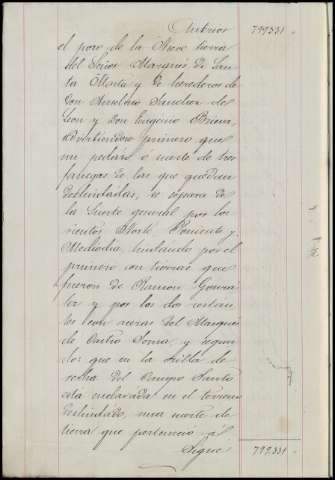 Anterior 799331
el pozo de la Nieve tierra
del Señor Marqués de San-
ta Marta y de herederos de
Don Aureliano Sanchez de
Leon y Don Eugenio
advirtiendose primero que
un pedazo ó suerte de tres
fanegas de las que quedan
deslindadas, se separa de
la suerte general por los
vientos Norte Poniente y
Mediodia, lindando por el
primero con tierras que
fueron de Ramon Gonza-
lez y por los dos restan-
tes con del Marqués
de Castro Serna, y segun-
do: que en la
del Campo Santo
está enclavada en el terreno
deslindado, una suerte de
tierra que perteneció al
Sigue 799331